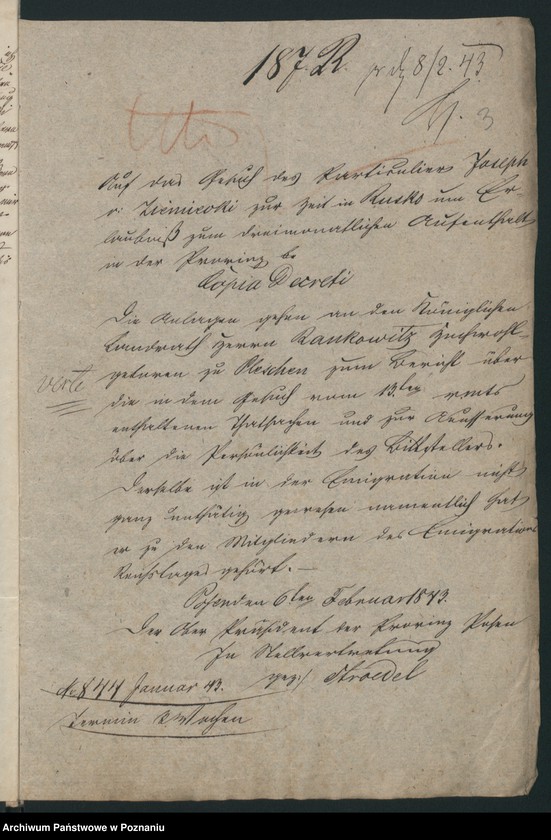 187. R. pr. d. 8/2. 43
3
Auf das Gesuch des Particuliers Joseph
v: zur Zeit in Rusko um Er-
laubniß zum dreimonatlichen Aufenthalt
in der Provinz
Copia Decreti
Die Anlagen gehen an den Königlichen
Landrath Herrn Hochwohl-
geboren zu Pleschen zum Bericht über
verte
die in dem Gesuch vom 13ten
enthaltenen Thatsachen und zur Aeusserung
über die Persönlichkeit des Bittstellers.
Derselbe ist in der Emigration nicht
ganz unthätig gewesen namentlich hat
er zu den Mitgliedern des Emigrations
Reichstages gehört. —
Posen den 6ten Februar 1843.
Der Ober Präsident der Provinz Posen
In Stellvertretung
gez:/ Stroedel
No 844 Januar 43.
Termin Wochen
Archiwum Państwowe w Poznaniu